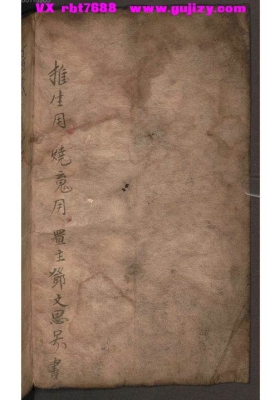 VX rbt7688 www.gujizy.com
推生用 燒意用 置主鄧文思 書